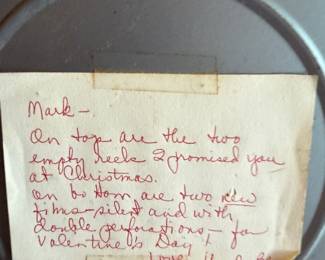 Mark —
On top are the two
empty reels I promised you
at Christmas.
On bottom are two new
films - silent and with
double perforations - for
Valentine's Day!
Love,